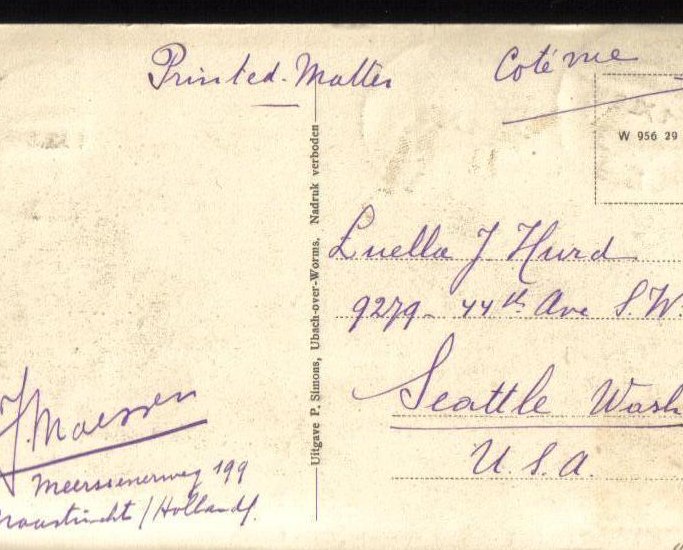 Printed-Matter
Coté vue
W 956 29
Uitgave P. Simons, Ubach-over-Worms. Nadruk verboden
Luella J Hurd
9279- 44th Ave S.W.
Seattle Wash
U.S.A.
J. Maessen
Meerssenerweg 199
Maastricht / Holland.